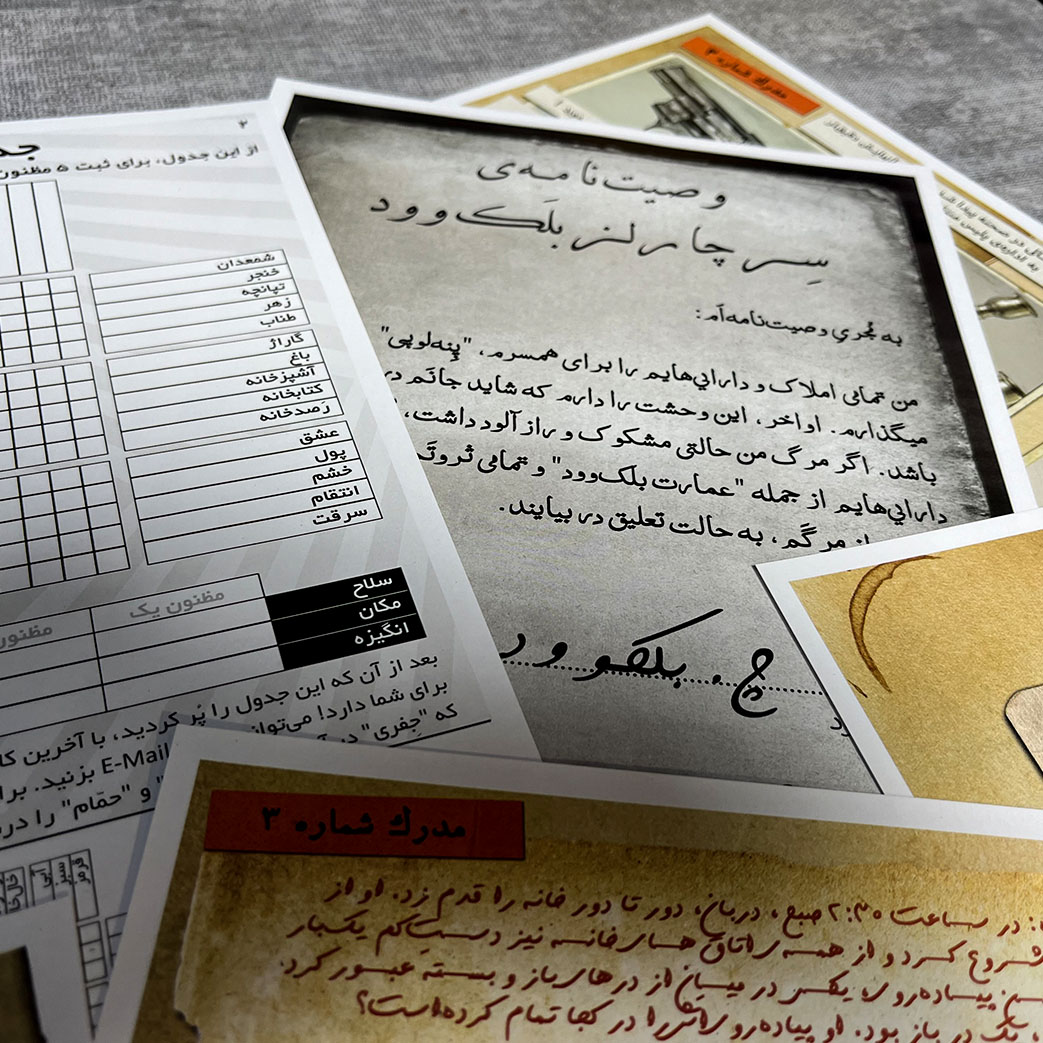 مدرک شماره ۲
مورد ۱
وصیت‌نامه‌ی
سِر چارلز بلَک‌وود
به مُجریِ وصیت‌نامه‌اَم:
من تمامی املاک و دارایی‌هایم را برای همسرم، "پِنه‌لوپی"
میگذارم. اواخر، این وحشت را دارم که شاید جانَم در
باشد. اگر مرگ من حالتی مشکوک و رازآلود داشت،
دارایی‌هایم از جمله "عمارت بلَک‌وود" و تمامی ثروتَم
از مرگَم، به حالت تعلیق در بیایند.
چ. بلکوود
۲
از این جدول، برای ثبت ۵ مظنون
شمعدان
خنجر
تپانچه
زهر
طناب
گاراژ
باغ
آشپزخانه
کتابخانه
رَصدخانه
عشق
پول
خشم
انتقام
سرقت
سلاح
مظنون یک
مکان
انگیزه
بعد از آن که این جدول را پُر کردید، با آخرین
برای شما دارد! می‌توانید
که "جِفری" در
E-Mail بزنید.
و "حمّام" را
قرمز
سبز
آبی
مدرک شماره ۳
در ساعت ۲:۳۰ صبح، دربان، دور تا دور خانه را قدم زد. او از
شروع کرد و از همه‌ی اتاق های خانه نیز دستِ‌کم یکبار
پیاده‌روی، یکسر در میان از درهای باز و بسته عبور کرد.
یک در باز بود. او پیاده‌روی‌اش را در کجا تمام کرده‌است؟